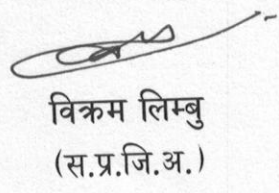 विक्रम लिम्बु
(स.प्र.जि.अ.)